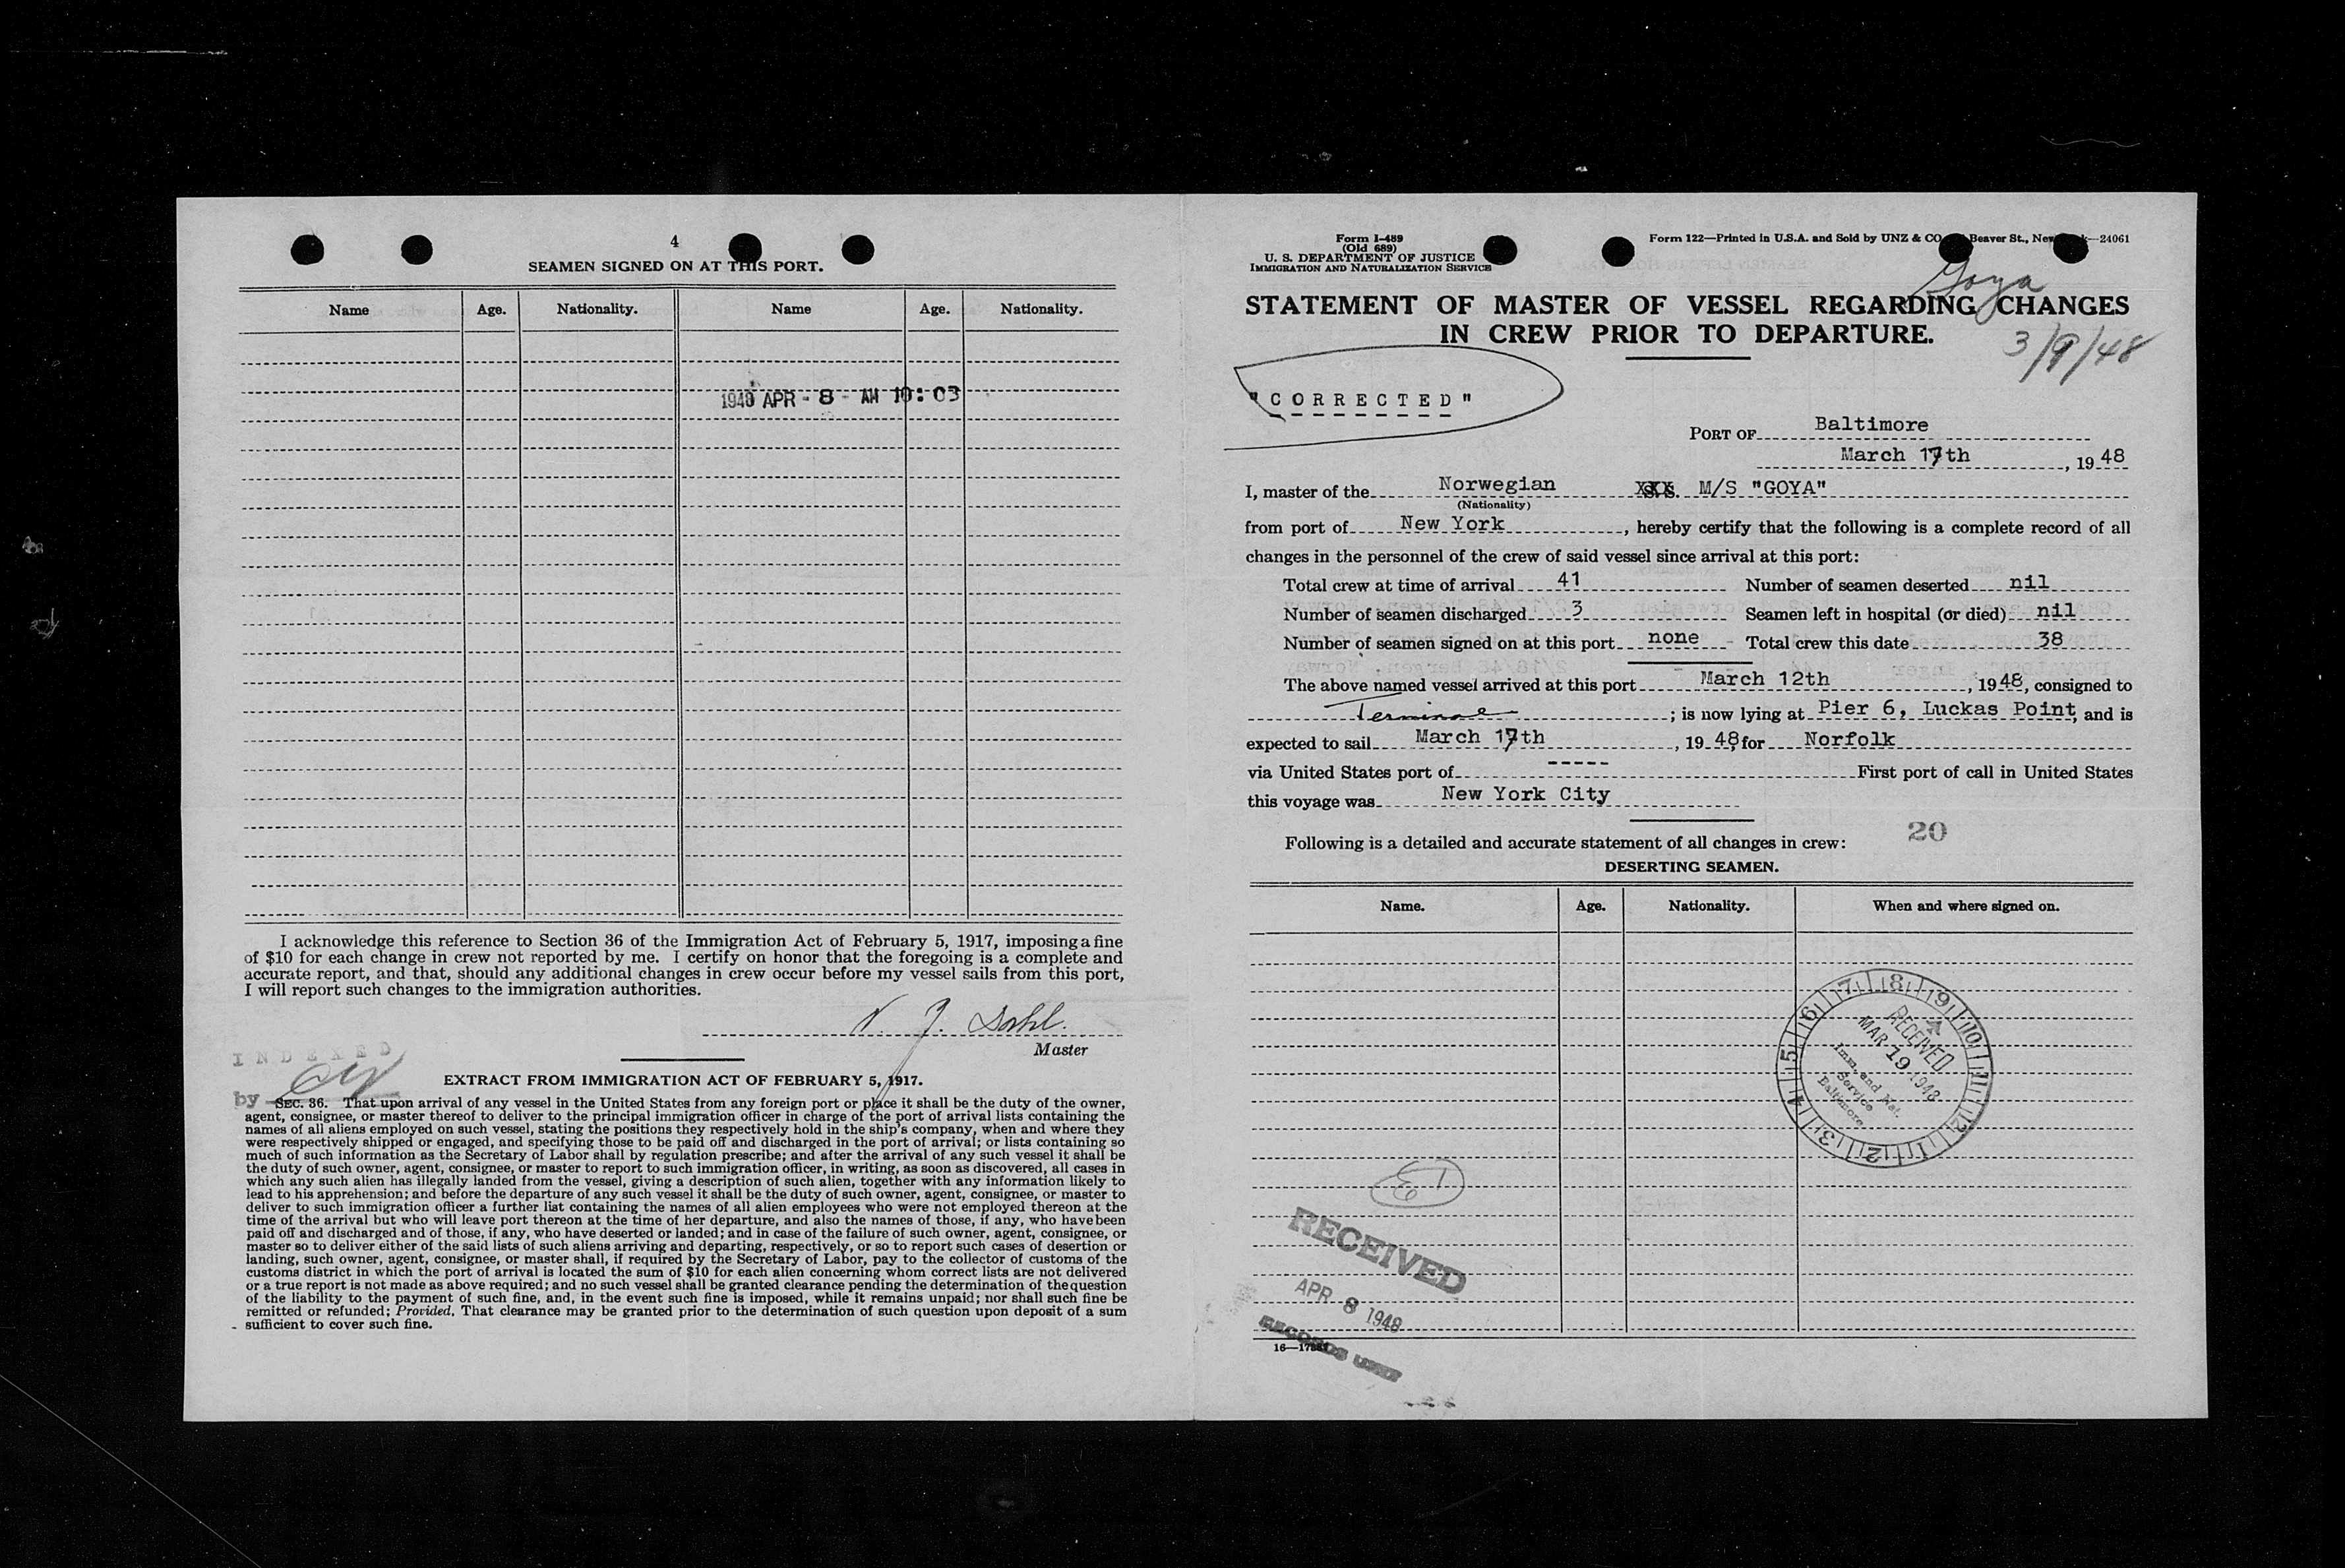 4
SEAMEN SIGNED ON AT THIS PORT.
Name Age. Nationality. Name Age. Nationality.
1948 APR - 8 - AM 10: 03
I acknowledge this reference to Section 36 of the Immigration Act of February 5, 1917, imposing a fine
of $10 for each change in crew not reported by me. I certify on honor that the foregoing is a complete and
accurate report, and that, should any additional changes in crew occur before my vessel sails from this port,
I will report such changes to the immigration authorities.
Dahl.
Master
INDEXED
by
EXTRACT FROM IMMIGRATION ACT OF FEBRUARY 5, 1917.
SEC. 36. That upon arrival of any vessel in the United States from any foreign port or place it shall be the duty of the owner,
agent, consignee, or master thereof to deliver to the principal immigration officer in charge of the port of arrival lists containing the
names of all aliens employed on such vessel, stating the positions they respectively hold in the ship's company, when and where they
were respectively shipped or engaged, and specifying those to be paid off and discharged in the port of arrival; or lists containing so
much of such information as the Secretary of Labor shall by regulation prescribe; and after the arrival of any such vessel it shall be
the duty of such owner, agent, consignee, or master to report to such immigration officer, in writing, as soon as discovered, all cases in
which any such alien has illegally landed from the vessel, giving a description of such alien, together with any information likely to
lead to his apprehension; and before the departure of any such vessel it shall be the duty of such owner, agent, consignee, or master to
deliver to such immigration officer a further list containing the names of all alien employees who were not employed thereon at the
time of the arrival but who will leave port thereon at the time of her departure, and also the names of those, if any, who have been
paid off and discharged and of those, if any, who have deserted or landed; and in case of the failure of such owner, agent, consignee, or
master so to deliver either of the said lists of such aliens arriving and departing, respectively, or so to report such cases of desertion or
landing, such owner, agent, consignee, or master shall, if required by the Secretary of Labor, pay to the collector of customs of the
customs district in which the port of arrival is located the sum of $10 for each alien concerning whom correct lists are not delivered
or a true report is not made as above required; and no such vessel shall be granted clearance pending the determination of the question
of the liability to the payment of such fine, and, in the event such fine is imposed, while it remains unpaid; nor shall such fine be
remitted or refunded; Provided, That clearance may be granted prior to the determination of such question upon deposit of a sum
sufficient to cover such fine.
Form I-489
(Old 689)
U. S. DEPARTMENT OF JUSTICE
IMMIGRATION AND NATURALIZATION SERVICE
Form 122—Printed in U.S.A. and Sold by UNZ & CO Beaver St., New —24061
Goya
STATEMENT OF MASTER OF VESSEL REGARDING CHANGES
IN CREW PRIOR TO DEPARTURE.
3/9/48
"CORRECTED"
PORT OF Baltimore
March 17th, 1948
I, master of the Norwegian M/S "GOYA"
(Nationality)
from port of New York, hereby certify that the following is a complete record of all
changes in the personnel of the crew of said vessel since arrival at this port:
Total crew at time of arrival 41 Number of seamen deserted nil
Number of seamen discharged 3 Seamen left in hospital (or died) nil
Number of seamen signed on at this port none Total crew this date 38
The above named vessel arrived at this port March 12th, 1948, consigned to
Terminal; is now lying at Pier 6, Luckas Point, and is
expected to sail March 17th, 1948, for Norfolk
via United States port of ----- First port of call in United States
this voyage was New York City
20
Following is a detailed and accurate statement of all changes in crew:
DESERTING SEAMEN.
Name. Age. Nationality. When and where signed on.
RECEIVED
MAR 19 1948
Imm. and Nat.
Service
Baltimore
1 2 3 4 5 6 7 8 9 10 11 12
RECEIVED
APR 8 1948
RECORDS